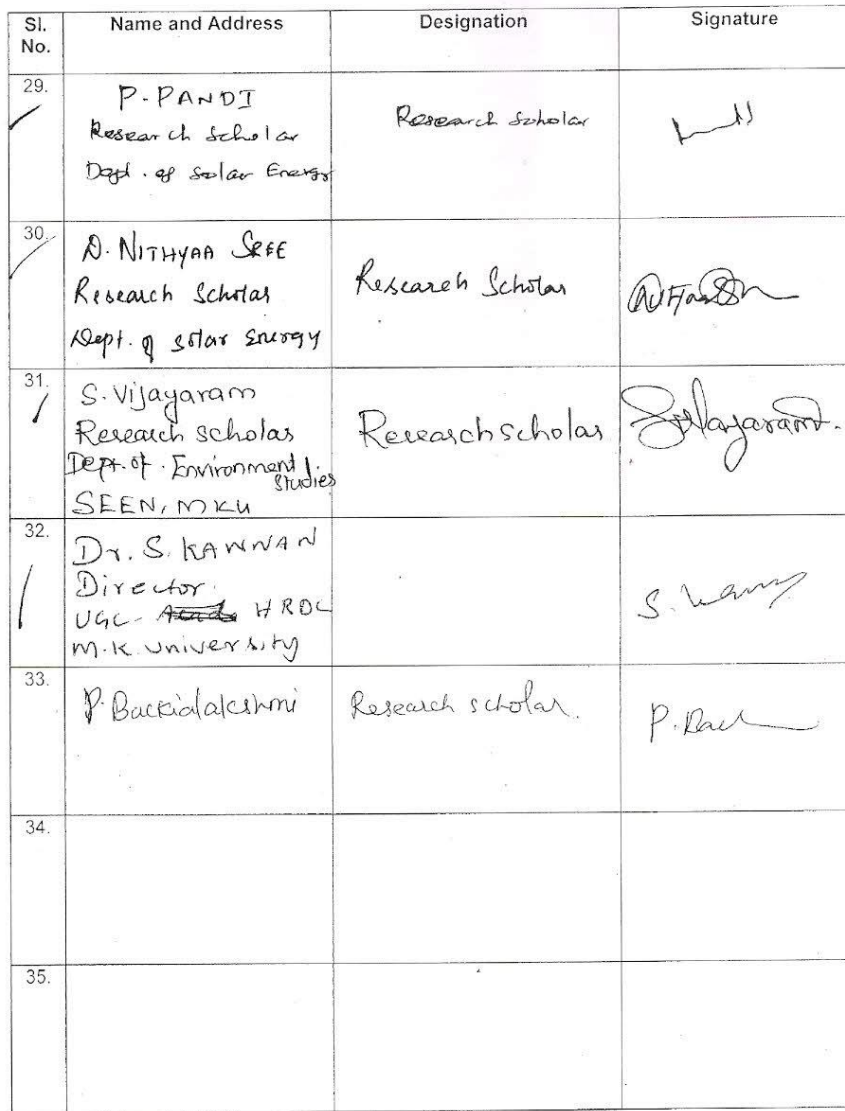 Sl. No. Name and Address Designation Signature
29.
P. PANDI
Research Scholar
Dept. of Solar Energy
Research Scholar
30.
D. NITHYAA SREE
Research Scholar
Dept. of Solar Energy
Research Scholar
31.
S. Vijayaram
Research Scholar
Dept. of Environment Studies
SEEN, MKU
Research Scholar
32.
Dr. S. KANNAN
Director
UGC- HRDC
M.K. University
33.
P. Backialakshmi
Research Scholar.
34.
35.